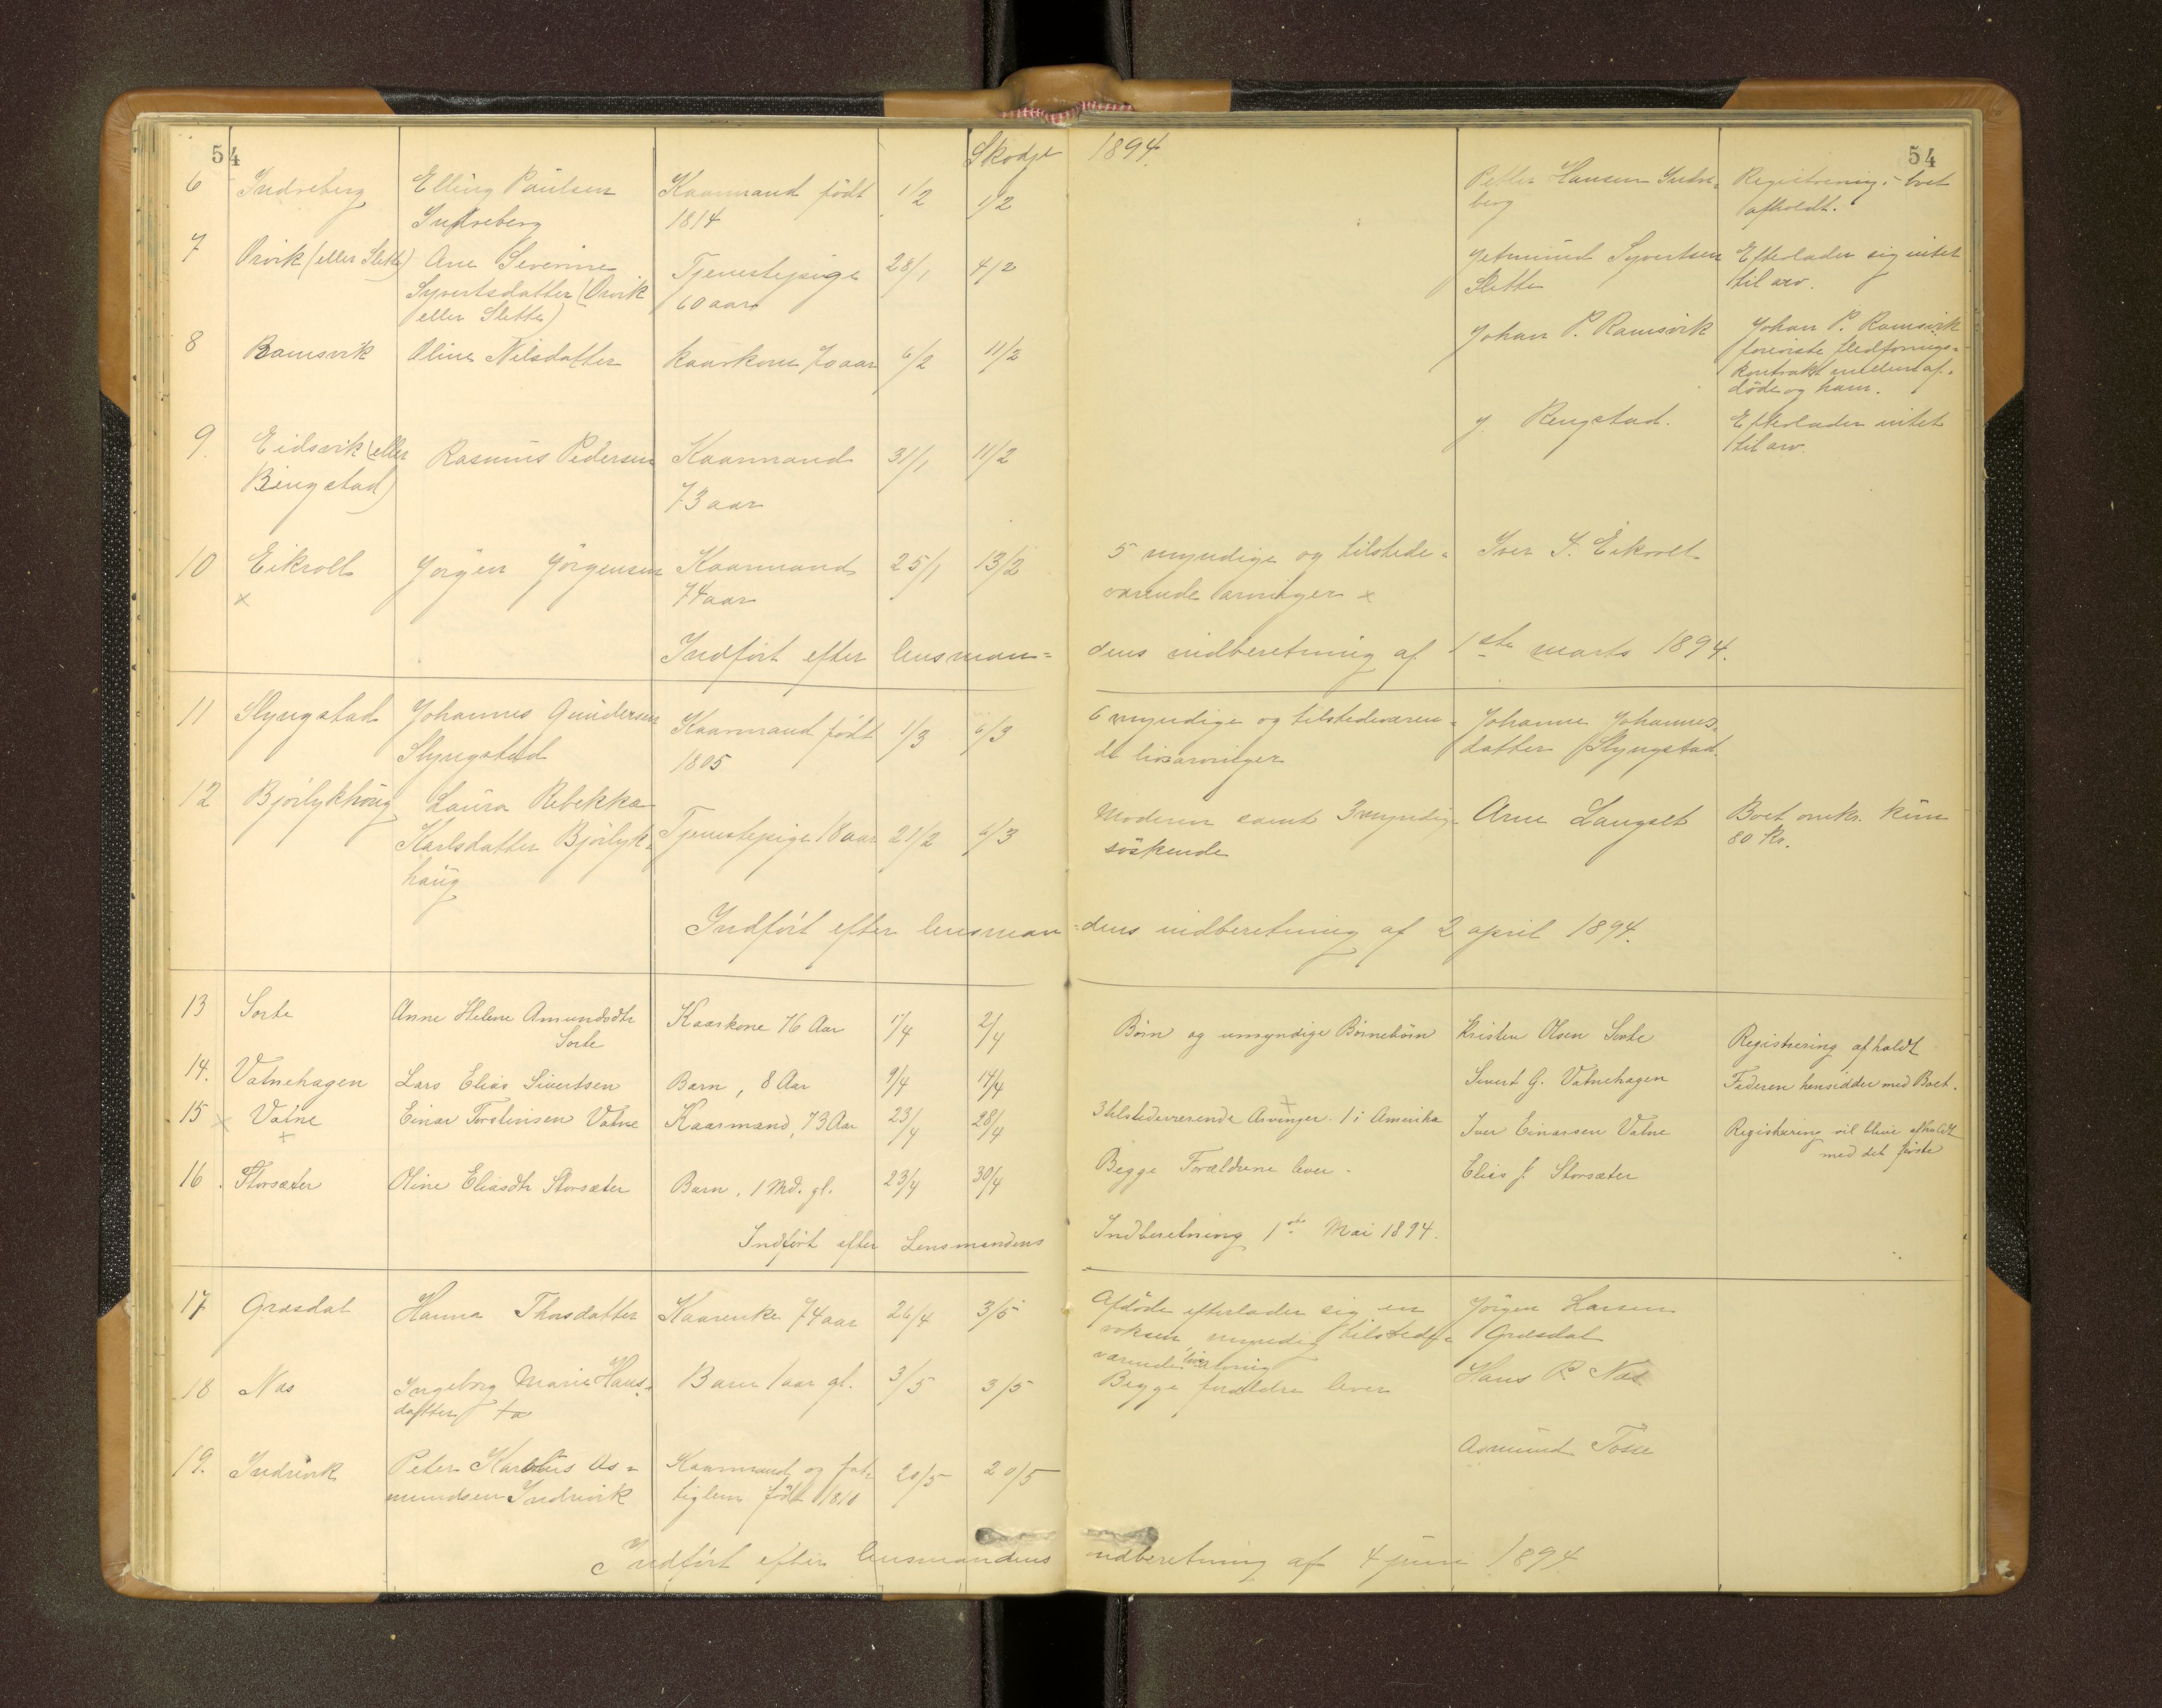 54
Skodje 1894.
54
6 Indreberg Elling Paulsen Kaarmand født 1/2 1/2 Petter Hansen Indre- Registrering i boet
Indreberg 1814 berg afholdt.
7 Orvik (eller Slette) Ane Severine Tjenestepige 28/1 4/2 Jetmund Syvertsen Efterlader sig intet
Syvertsdatter (Orvik 60 aar Slette til arv.
eller Slette)
8 Ramsvik Oline Nilsdatter kaarkone 70 aar 6/2 11/2 Johan P. Ramsvik Johan P. Ramsvik
foreviste fledførings-
kontrakt mellem af-
døde og ham.
9. Eidsvik (eller Rasmus Pedersen Kaarmand 31/1 11/2 J. Rengstad. Efterlader intet
Ringstad) 73 aar til arv.
10 Eikrolt Jørgen Jørgensen Kaarmand 25/1 13/2 5 myndige og tilstede= Iver J. Eikrolt
x 74 aar værende arvinger x
Indført efter lensman= dens indberetning af 1ste marts 1894.
11 Slyngstad Johannes Gundersen Kaarmand født 1/3 6/3 6 myndige og tilstedeværen= Johanne Johannes-
Slyngstad 1805 de livsarvinger datter Slyngstad.
12 Bjørlykhaug Laura Rebekka Tjenestepige 18 aar 21/2 6/3 Moderen samt 3 myndige Arne Langset Boet omkr. kun
Karlsdatter Bjørlyk= søskende 80 Kr.
haug
Indført efter lensman =dens indberetning af 2 april 1894.
13 Sorte Anne Helene Amundsdtr Kaarkone 76 Aar 1/4 2/4 Børn og umyndige Børnebørn Kristen Olsen Sorte Registrering afholdt
Sorte
14. Vatnehagen Lars Elias Sivertsen Barn, 8 Aar 9/4 14/4 Sivert G. Vatnehagen Faderen hensidder med Boet.
15 x Vatne Einar Torsteinsen Vatne Kaarmand, 73 Aar 23/4 28/4 3 tilstedeværende Arvinger. 1 i Amerika Iver Einarsen Vatne Registrering vil blive afholdt
+ med det første
16. Storsæter Oline Eliasdtr Storsæter Barn, 1 Md. gl. 23/4 30/4 Begge Forældrene lever. Elias J. Storsæter
Indført efter Lensmandens Indberetning 1ste Mai 1894.
17 Græsdal Hanna Thorsdatter Kaarenke 74 aar 26/4 3/5 Afdøde efterlader sig en Jørgen Larsen
voksen myndig tilstede- Græsdal
værende livsarving
18 Næs Ingeborg Marie Hans= Barn 1 aar gl. 3/5 3/5 Begge forældre lever Hans P. Næs
datter
19. Indrevik Peter Karolus As= Kaarmand og fat= 20/5 20/5 Asmund Tosse
mundsen Indrevik tiglem født 1810
Indført efter lensmandens indberetning af 4 juni 1894.